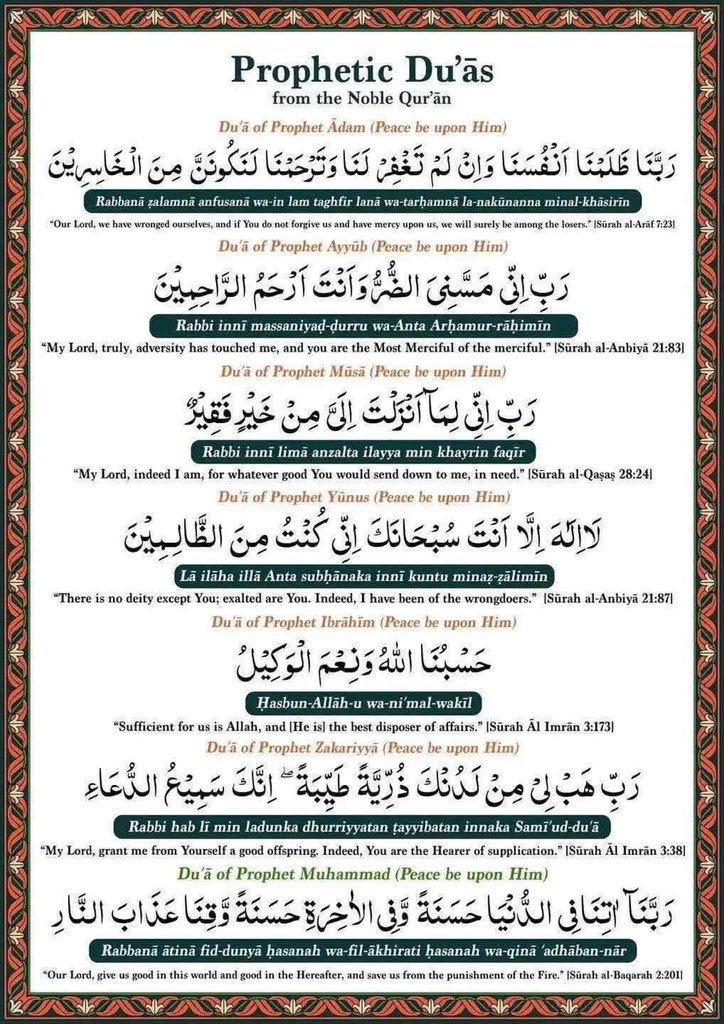 Prophetic Du'ās
from the Noble Qur'ān
Du'ā of Prophet Ādam (Peace be upon Him)
رَبَّنَا ظَلَمْنَا اَنْفُسَنَا وَاِنْ لَمْ تَغْفِرْ لَنَا وَتَرْحَمْنَا لَنَكُونَنَّ مِنَ الْخَاسِرِيْنَ
Rabbanā ẓalamnā anfusanā wa-in lam taghfir lanā wa-tarḥamnā la-nakūnanna minal-khāsirīn
"Our Lord, we have wronged ourselves, and if You do not forgive us and have mercy upon us, we will surely be among the losers." [Sūrah al-Arāf 7:23]
Du'ā of Prophet Ayyūb (Peace be upon Him)
رَبِّ اِنِّي مَسَّنِيَ الضُّرُّ وَاَنْتَ اَرْحَمُ الرَّاحِمِيْنَ
Rabbi innī massaniyaḍ-ḍurru wa-Anta Arḥamur-rāḥimīn
"My Lord, truly, adversity has touched me, and you are the Most Merciful of the merciful." [Sūrah al-Anbiyā 21:83]
Du'ā of Prophet Mūsā (Peace be upon Him)
رَبِّ اِنِّي لِمَآ اَنْزَلْتَ اِلَيَّ مِنْ خَيْرٍ فَقِيْرٌ
Rabbi innī limā anzalta ilayya min khayrin faqīr
"My Lord, indeed I am, for whatever good You would send down to me, in need." [Sūrah al-Qaṣaṣ 28:24]
Du'ā of Prophet Yūnus (Peace be upon Him)
لَا اِلٰهَ اِلَّا اَنْتَ سُبْحَانَكَ اِنِّي كُنْتُ مِنَ الظَّالِمِيْنَ
Lā ilāha illā Anta subḥānaka innī kuntu minaẓ-ẓālimīn
"There is no deity except You; exalted are You. Indeed, I have been of the wrongdoers." [Sūrah al-Anbiyā 21:87]
Du'ā of Prophet Ibrāhīm (Peace be upon Him)
حَسْبُنَا اللّٰهُ وَنِعْمَ الْوَكِيْلُ
Ḥasbun-Allāh-u wa-ni'mal-wakīl
"Sufficient for us is Allah, and [He is] the best disposer of affairs." [Sūrah Āl Imrān 3:173]
Du'ā of Prophet Zakariyyā (Peace be upon Him)
رَبِّ هَبْ لِيْ مِنْ لَدُنْكَ ذُرِّيَّةً طَيِّبَةً ۖ اِنَّكَ سَمِيْعُ الدُّعَاءِ
Rabbi hab lī min ladunka dhurriyyatan ṭayyibatan innaka Samī'ud-du'ā
"My Lord, grant me from Yourself a good offspring. Indeed, You are the Hearer of supplication." [Sūrah Āl Imrān 3:38]
Du'ā of Prophet Muhammad (Peace be upon Him)
رَبَّنَآ اٰتِنَا فِي الدُّنْيَا حَسَنَةً وَّفِي الْاٰخِرَةِ حَسَنَةً وَّقِنَا عَذَابَ النَّارِ
Rabbanā ātinā fid-dunyā ḥasanah wa-fil-ākhirati ḥasanah wa-qinā 'adhāban-nār
"Our Lord, give us good in this world and good in the Hereafter, and save us from the punishment of the Fire." [Sūrah al-Baqarah 2:201]